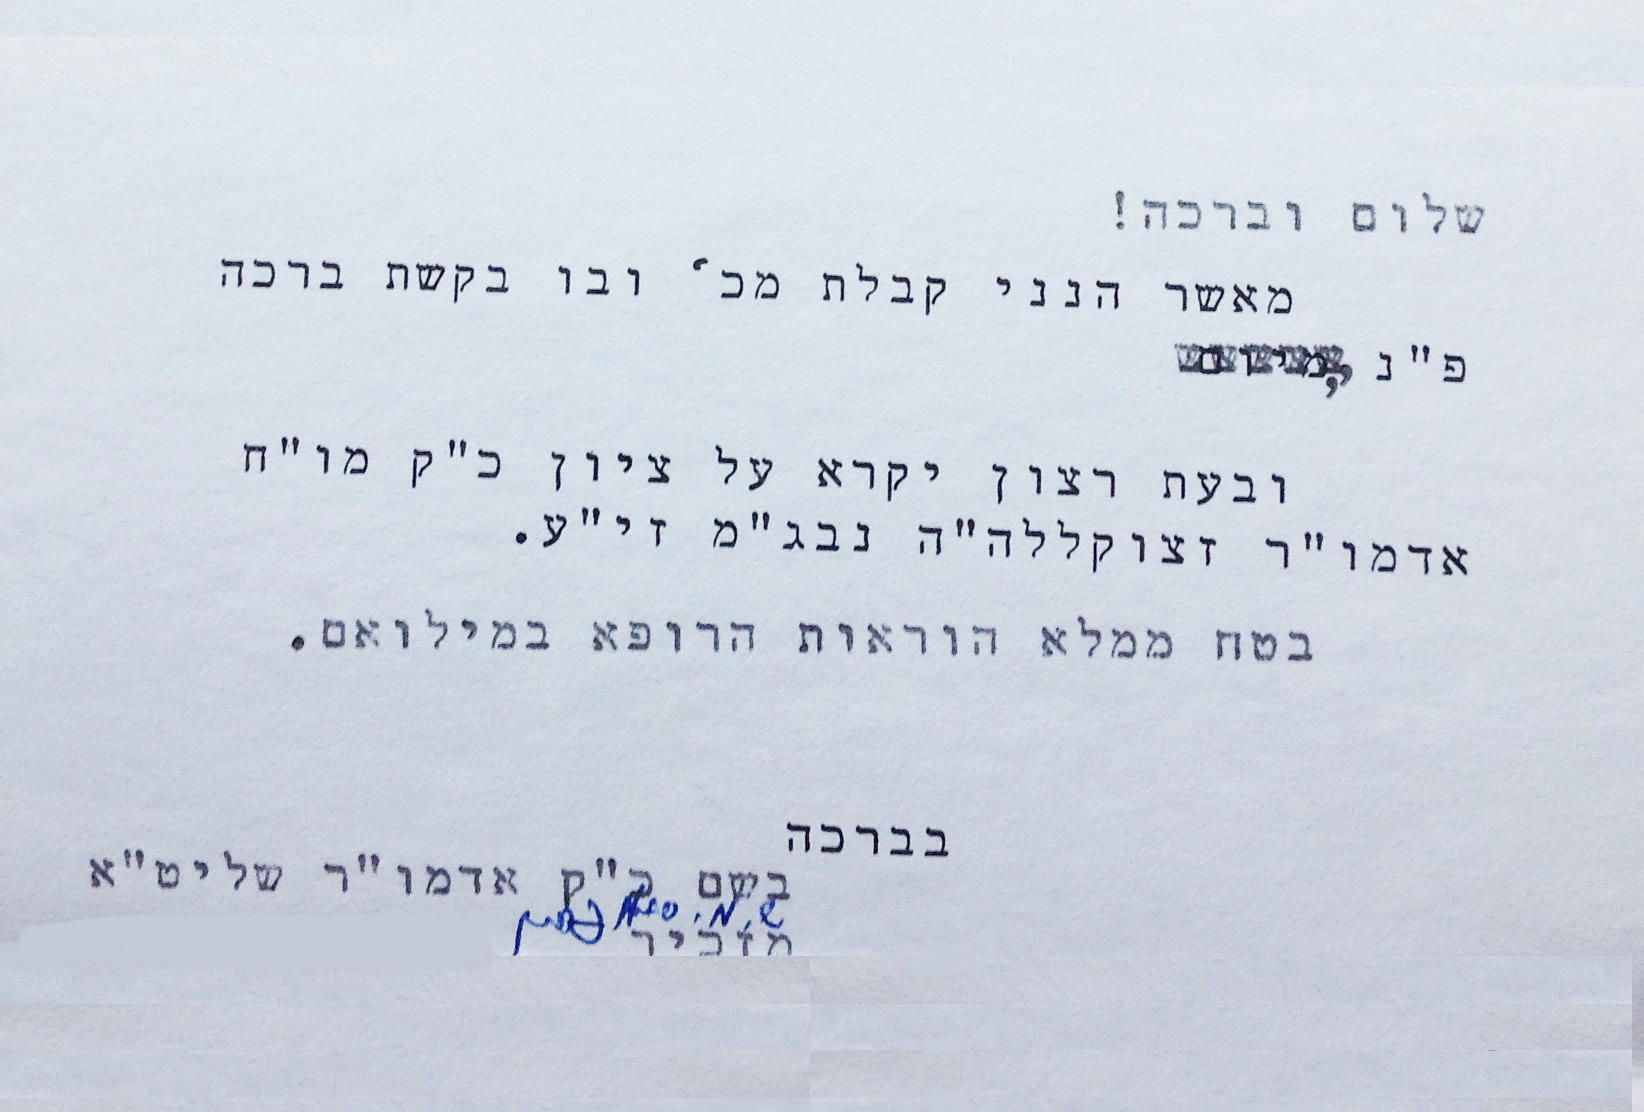 שלום וברכה!
מאשר הנני קבלת מכ' ובו בקשת ברכה
פ"נ
ובעת רצון יקרא על ציון כ"ק מו"ח
אדמו"ר זצוקללה"ה נבג"מ זי"ע.
בטח ממלא הוראות הרופא במילואם.
בברכה
בשם כ"ק אדמו"ר שליט"א
מזכיר